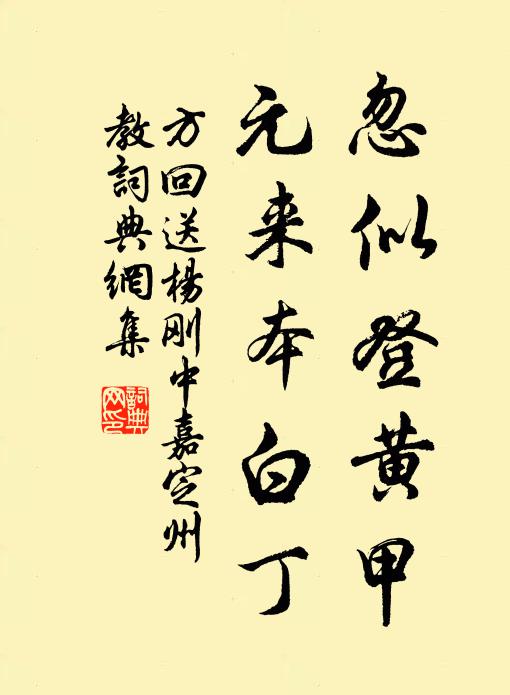 忽似登黄甲
元来本白丁
方回送楊刚中嘉定州
教詞典網集
詞典
网印